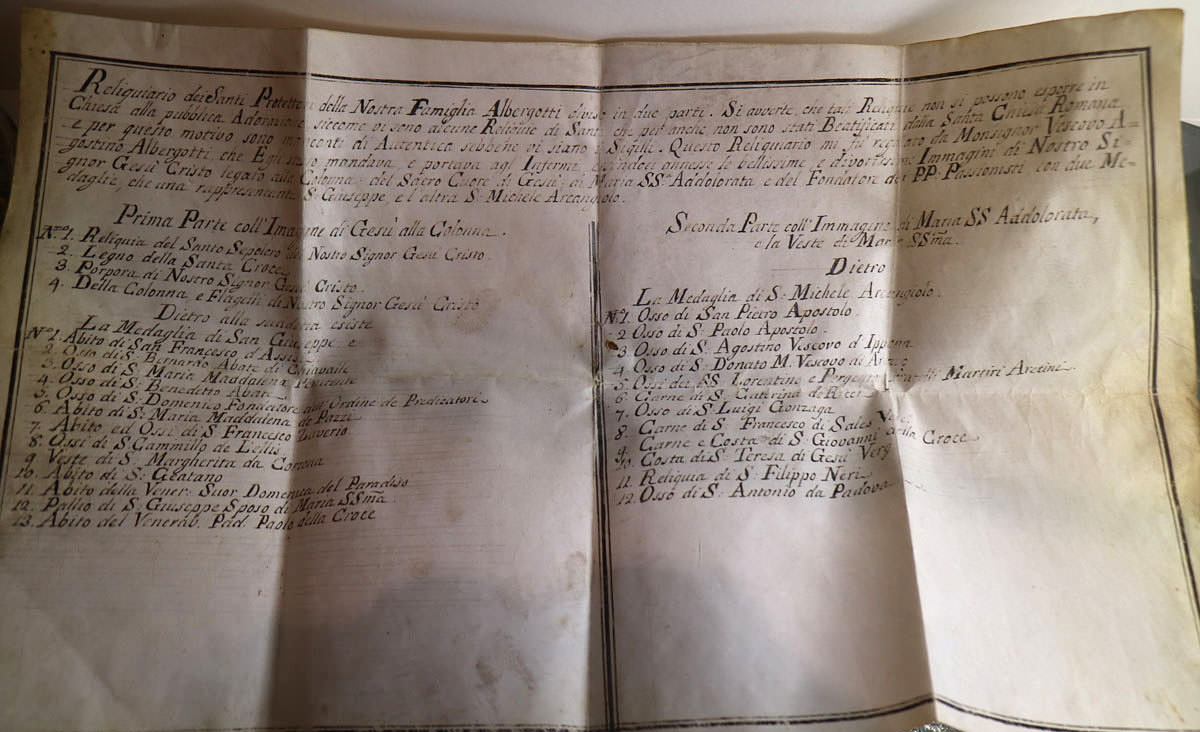 Reliquiario dei Santi Protettori della Nostra Famiglia Albergotti diviso in due parti. Si avverte, che tali Reliquie non si possono esporre in
Chiesa alla pubblica Adorazione, siccome vi sono alcune Reliquie di Santi, che per anche non sono stati Beatificati dalla Santa Chiesa Romana
e per questo motivo sono mancanti di Autentica sebbene vi siano i Sigilli. Questo Reliquiario mi fu regalato da Monsignor Vescovo A=
gostino Albergotti, che Egli mandava, e portava agl' Infermi, essendoci annesse le bellissime, e divotissime Immagini di Nostro Si=
gnor Gesù Cristo legato alla Colonna, del Sacro Cuore di Gesù, di Maria SS. Addolorata e del Fondatore de' PP. Passionisti con due Me=
daglie, che una rappresentante S. Giuseppe, e l'altra S. Michele Arcangiolo.
Prima Parte coll' Imagine di Gesù alla Colonna.
N.ro 1. Reliquia del Santo Sepolcro del Nostro Signor Gesù Cristo.
2. Legno della Santa Croce
3. Porpora di Nostro Signor Gesù Cristo.
4. Della Colonna, e Flagelli di Nostro Signor Gesù Cristo
Dietro alla sudetta esiste
La Medaglia di San Giuseppe, e
N.ro 1. Abito di San Francesco d'Assisi
2. Osso di S. Bernardo Abate di Chiavalle
3. Osso di S. Maria Maddalena Penitente
4. Osso di S. Benedetto Abate
5. Osso di S. Domenico Fondatore dell' Ordine de Predicatori
6. Abito di S. Maria Maddalena de Pazzi
7. Abito ed Ossi di S. Francesco Zaverio
8. Ossi di S. Cammillo de Lellis
9. Veste di S. Margherita da Cortona
10. Abito di S. Geatano
11. Abito della Vener. Suor Domenica del Paradiso
12. Pallio di S. Giuseppe Sposo di Maria SSma
13. Abito del Venerab. Pad. Paolo della Croce
Seconda Parte coll' Immagine di Maria SS Addolorata,
e la Veste di Maria SSma.
Dietro
La Medaglia di S. Michele Arcangiolo.
N.ro 1. Osso di San Pietro Apostolo.
2. Osso di S. Paolo Apostolo.
3. Osso di S. Agostino Vescovo d'Ippona
4. Osso di S. Donato M. Vescovo di Arezzo
5. Ossi dei SS Lorentino e Pergentino Martiri Aretini
6. Carne di S. Catarina de Ricci
7. Osso di S. Luigi Gonzaga
8. Carne di S. Francesco di Sales Vesc.
9. Carne e Costa di S. Giovanni della Croce
10. Costa di S. Teresa di Gesù Verg
11. Reliquia di S. Filippo Neri
12. Osso di S. Antonio da Padova